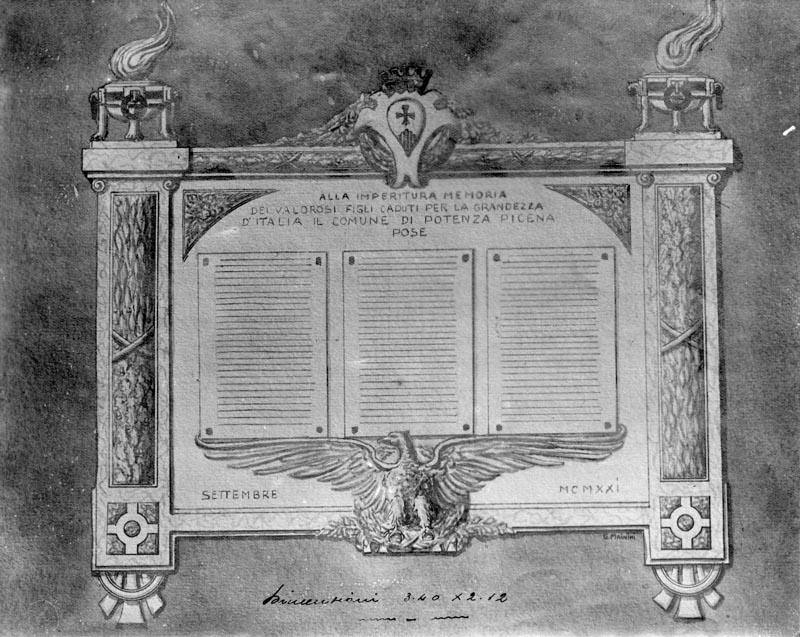 ALLA IMPERITURA MEMORIA
DEI VALOROSI FIGLI CADUTI PER LA GRANDEZZA
D'ITALIA IL COMUNE DI POTENZA PICENA
POSE
SETTEMBRE MCMXXI
G. MAININI
Dimensioni 3.40 x 2.12